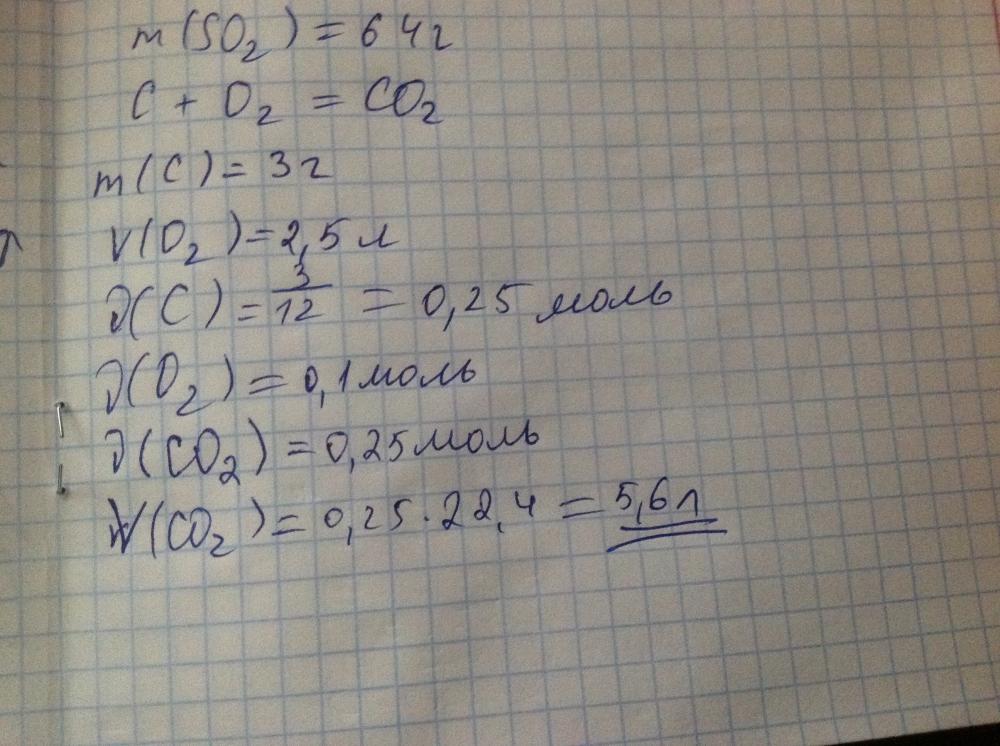 m(SO₂) = 64г
C + O₂ = CO₂
m(C) = 3г
V(O₂) = 2,5л
ν(C) = 3/12 = 0,25 моль
ν(O₂) = 0,1 моль
ν(CO₂) = 0,25 моль
V(CO₂) = 0,25 · 22,4 = 5,6л